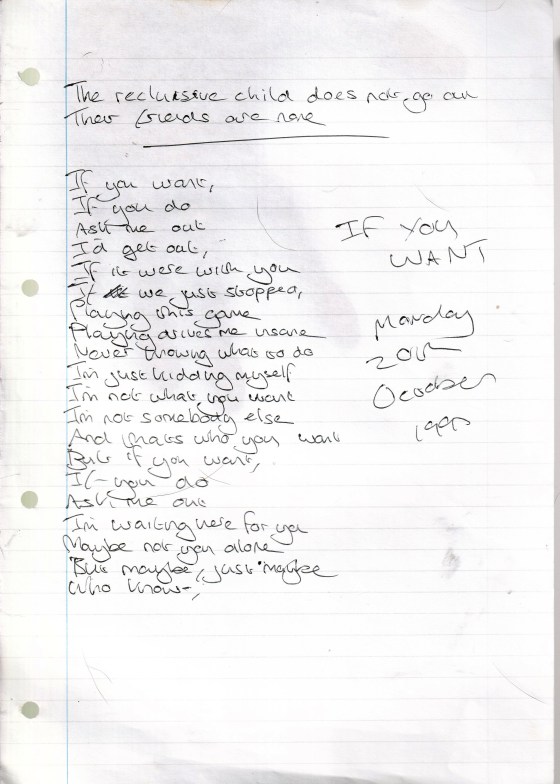 The reclusive child does not go out
Their friends are none
If you want,
If you do
Ask me out
I'd get out,
If it were with you
If we just stopped,
Playing this game
Playing drives me insane
Never knowing what to do
I'm just kidding myself
I'm not what you want
I'm not somebody else
And that's who you want
But if you want,
If you do
Ask me out
I'm waiting here for you
Maybe not you alone
But maybe, just maybe
Who knows,
IF YOU
WANT
Monday
20th
October